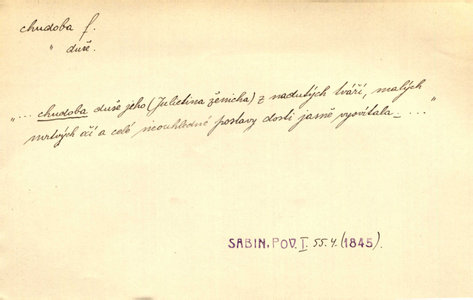 chudoba f.
" duše.
"... chudoba duše jeho (Julietina ženicha) z nadutých tváří, malých
mrtvých očí a celé neouhledné postavy dosti jasně vysvítala ... "
SABIN. POV. I. 55.4. (1845).